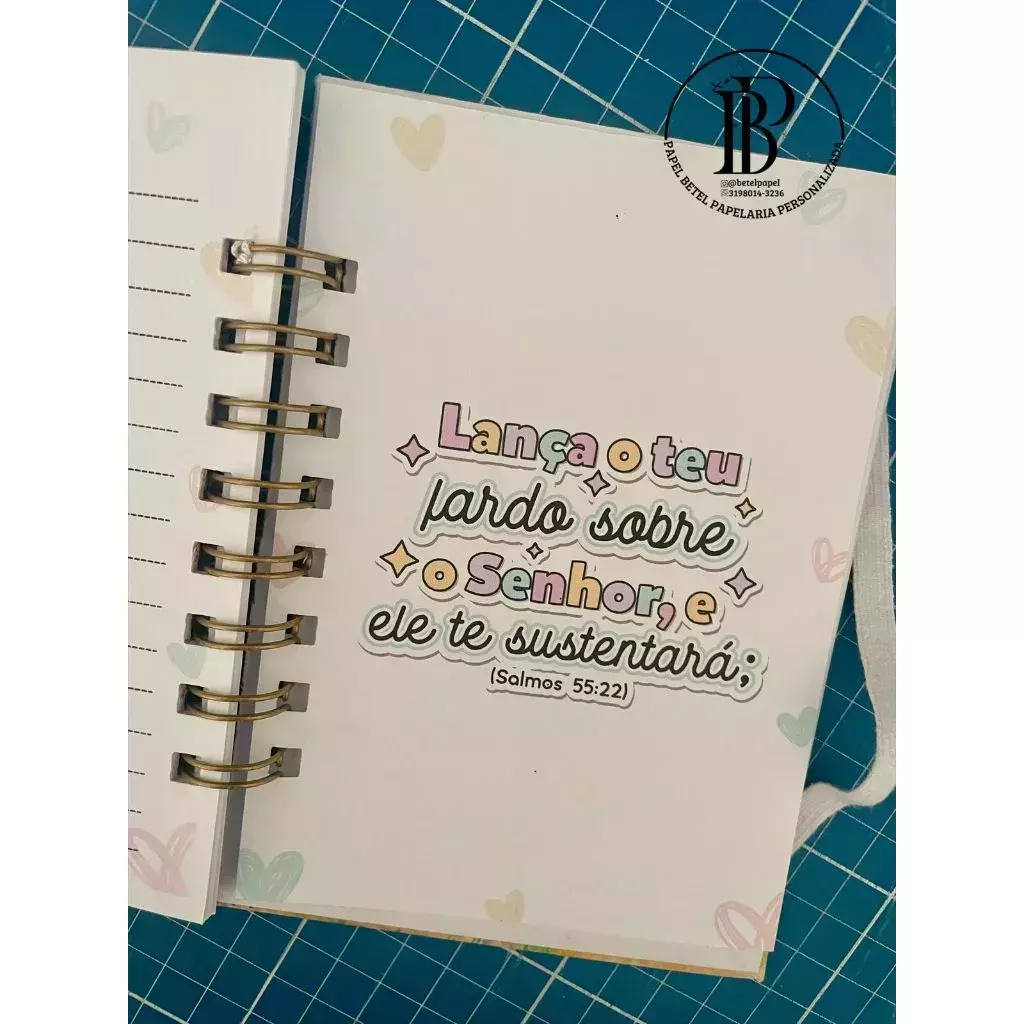 BP
@betelpapel
3198014-3236
PAPEL BETEL PAPELARIA PERSONALIZADA
Lança o teu
fardo sobre
o Senhor, e
ele te sustentará;
(Salmos 55:22)